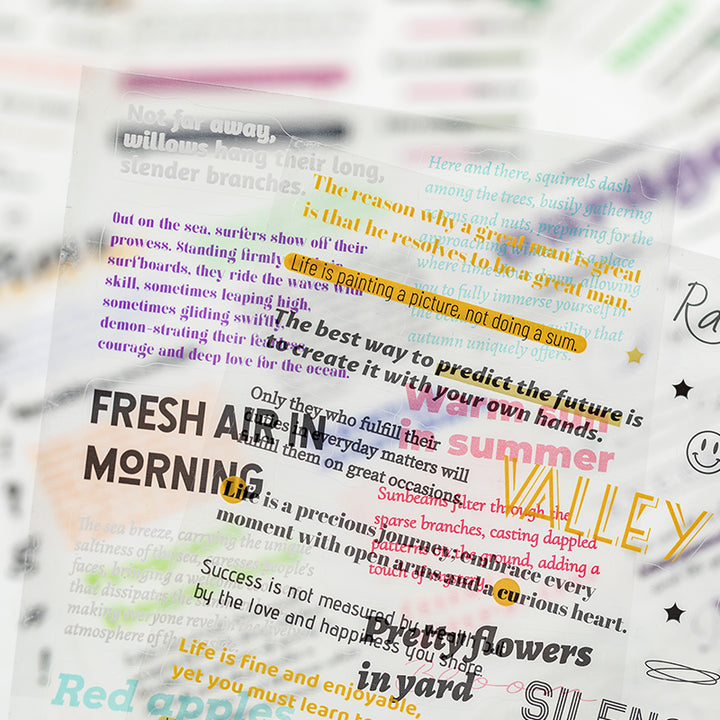 Not far away,
willows hang their long,
slender branches.
Here and there, squirrels dash
among the trees, busily gathering
acorns and nuts, preparing for the
approaching a place
where time down, allowing
you to fully immerse yourself in
the and tranquility that
autumn uniquely offers.
The reason why a great man is great
is that he resolves to be a great man.
Out on the sea, surfers show off their
prowess. Standing firmly
surfboards, they ride the waves with
skill, sometimes leaping high,
sometimes gliding swiftly,
demon-strating their fearless
courage and deep love for the ocean.
Life is painting a picture, not doing a sum.
The best way to predict the future is
to create it with your own hands.
Warm sun
in summer
FRESH AIR IN
MORNING
Only they who fulfill their
duties in everyday matters will
fulfill them on great occasions.
VALLEY
Life is a precious journey; embrace every
moment with open arms and a curious heart.
Sunbeams filter through the
sparse branches, casting dappled
patterns on the ground, adding a
touch of
The sea breeze, carrying the unique
saltiness of the sea, caresses people's
faces, bringing a
that dissipates the
making everyone revel in the
atmosphere of the
Success is not measured by wealth but
by the love and happiness you share
Pretty flowers
in yard
Life is fine and enjoyable,
yet you must learn to
Red apples
SILENC
Ra